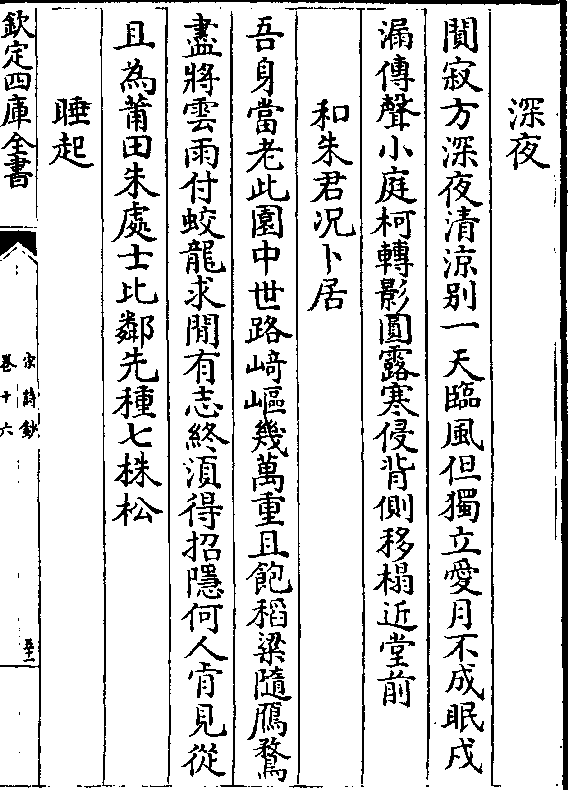 深夜
闃寂方深夜清涼别一天臨風但獨立愛月不成眠戍
漏傳聲小庭柯轉影圓露寒侵背側移榻近堂前
和朱君况卜居
吾身當老此園中世路﨑嶇幾萬重且飽稻粱隨鴈鶩
盡將雲雨付蛟龍求閒有志終湏得招隱何人肯見從
且為莆田朱處士比鄰先種七株松
睡起
欽定四庫全書
宋詩鈔
卷十六